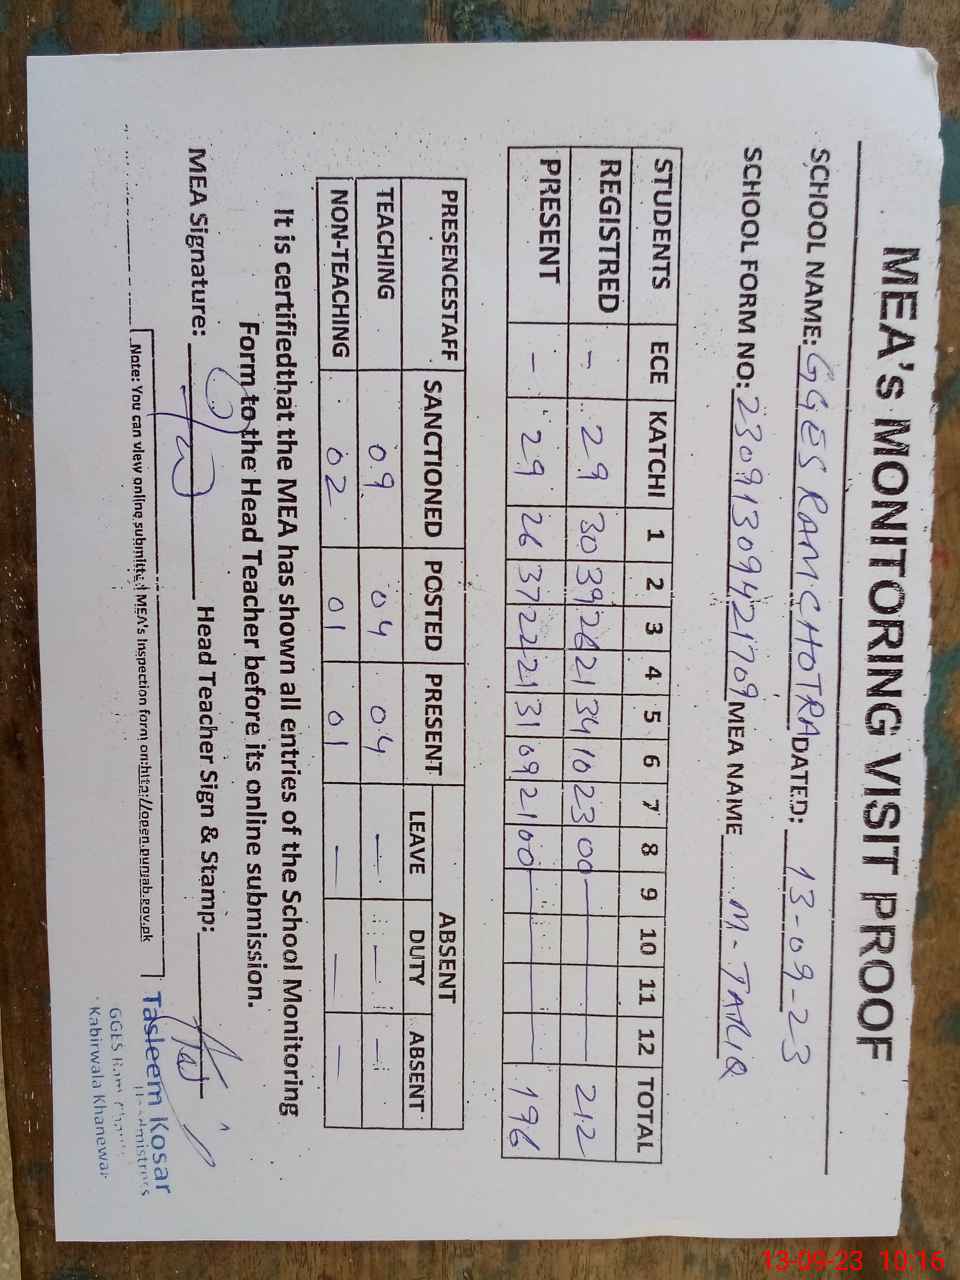 MEA's MONITORING VISIT PROOF
SCHOOL NAME: GGES RAMCHOTRA DATED: 13-09-23
SCHOOL FORM NO: 23091309421709 MEA NAME M-TARIQ
STUDENTS ECE KATCHI 1 2 3 4 5 6 7 8 9 10 11 12 TOTAL
REGISTRED - 29 30 39 26 21 34 10 23 00 212
PRESENT - 29 26 37 22 21 31 09 21 00 196
PRESENCESTAFF SANCTIONED POSTED PRESENT ABSENT
LEAVE DUTY ABSENT
TEACHING 09 04 04 - - -
NON-TEACHING 02 01 01 - - -
It is certifiedthat the MEA has shown all entries of the School Monitoring
Form to the Head Teacher before its online submission.
MEA Signature: Head Teacher Sign & Stamp:
Tasleem Kosar
GGES
Kabirwala Khanewal
Note: You can view online submitted MEA's Inspection form on:http://open.punjab.gov.pk
13-09-23 10:16